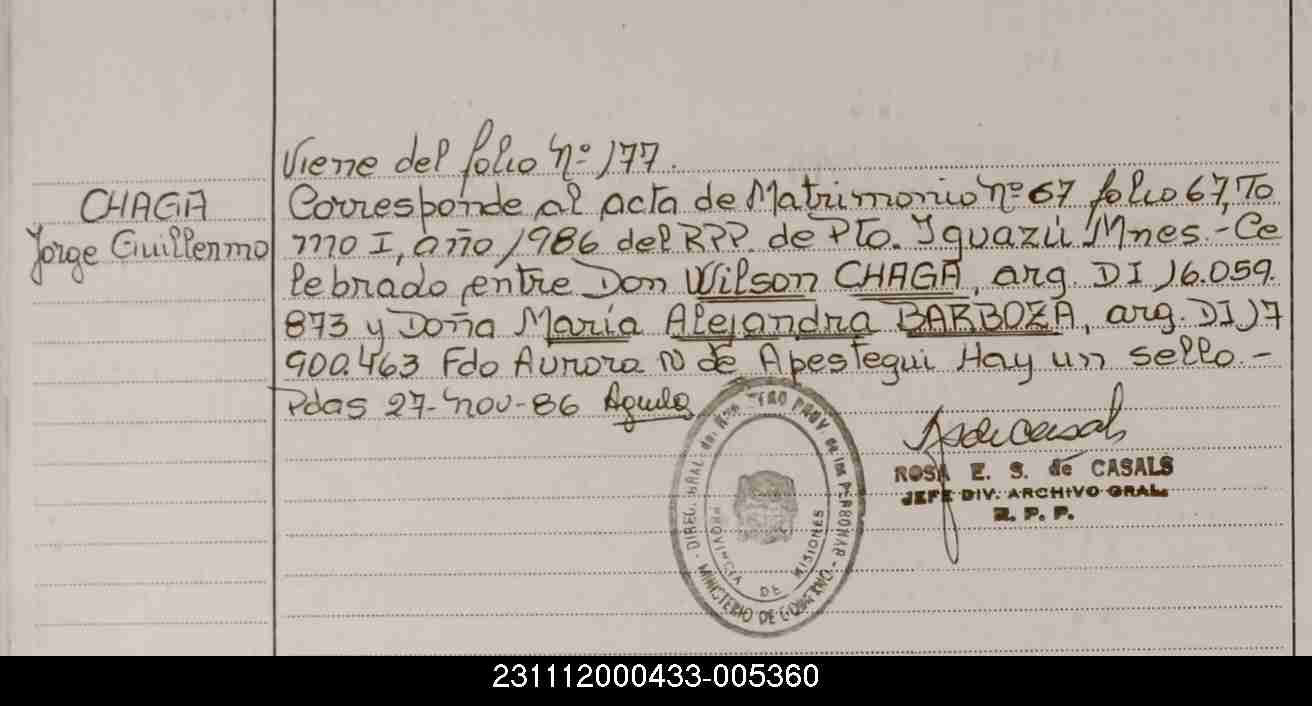 Viene del folio Nº 177.
CHAGA
Jorge Guillermo
Corresponde al acta de Matrimonio Nº 67 folio 67, To
mo I, año 1986 del RPP. de Pto. Iguazú Mnes.- Ce
lebrado entre Don Wilson CHAGA, arg. DI 16.059.
873 y Doña María Alejandra BARBOZA, arg. DI 17
900.463 Fdo Aurora N de Apestegui Hay un sello.-
Pdas 27-Nov-86
ROSA E. S. de CASALS
JEFE DIV. ARCHIVO GRAL.
R. P. P.
PROVINCIA DE MISIONES
MINISTERIO DE GOBIERNO
231112000433-005360